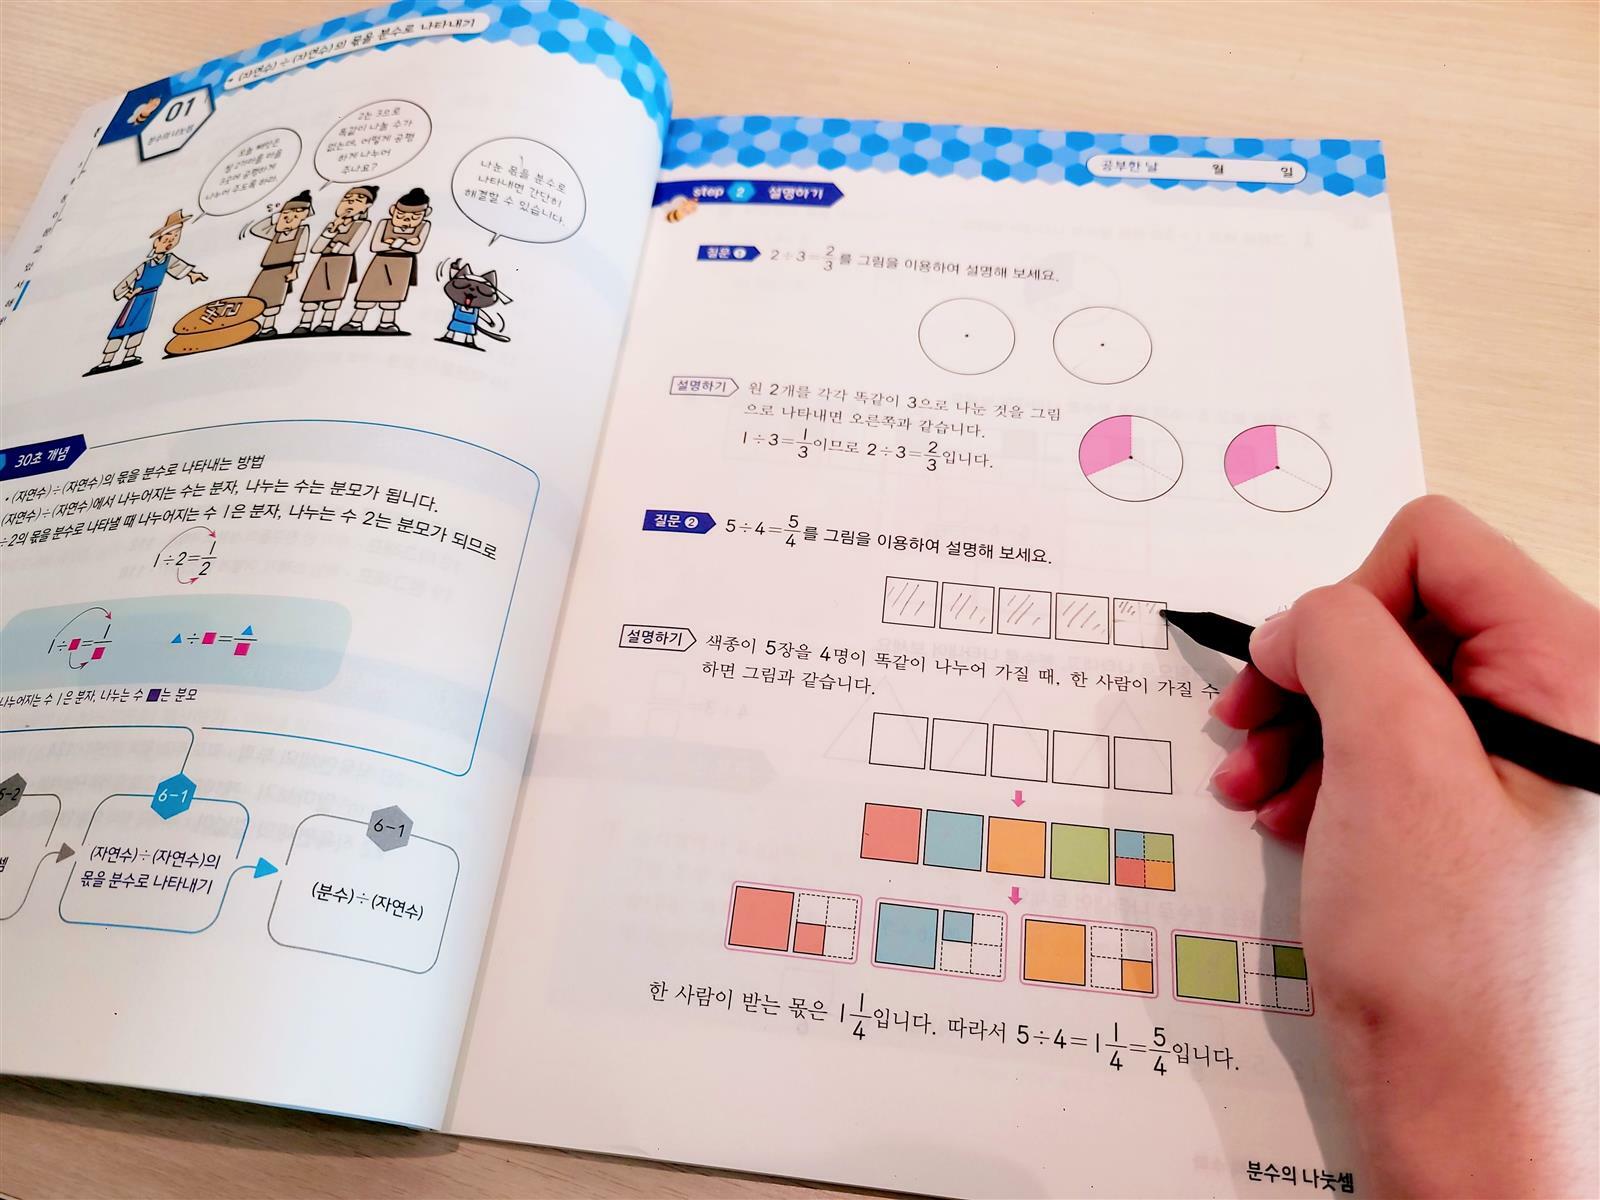 • (자연수)÷(자연수)의 몫을 분수로 나타내기
01
분수의 나눗셈
3곳에 공평하게
나누어 주도록 하라.
2는 3으로
똑같이 나눌 수가
없는데, 어떻게 공평
하게 나누어
주나요?
나눈 몫을 분수로
나타내면 간단히
해결할 수 있습니다.
30초 개념
• (자연수)÷(자연수)의 몫을 분수로 나타내는 방법
(자연수)÷(자연수)에서 나누어지는 수는 분자, 나누는 수는 분모가 됩니다.
÷2의 몫을 분수로 나타낼 때 나누어지는 수 1은 분자, 나누는 수 2는 분모가 되므로
1÷2=1/2
1÷■=1/■
▲÷■=▲/■
나누어지는 수 1은 분자, 나누는 수 ■는 분모
6-1
(자연수)÷(자연수)의
몫을 분수로 나타내기
6-1
(분수)÷(자연수)
공부한 날 월 일
step 2 설명하기
질문 ❶ 2÷3=2/3를 그림을 이용하여 설명해 보세요.
설명하기 원 2개를 각각 똑같이 3으로 나눈 것을 그림
으로 나타내면 오른쪽과 같습니다.
1÷3=1/3이므로 2÷3=2/3입니다.
질문 ❷ 5÷4=5/4를 그림을 이용하여 설명해 보세요.
설명하기 색종이 5장을 4명이 똑같이 나누어 가질 때, 한 사람이 가질 수
하면 그림과 같습니다.
한 사람이 받는 몫은 1 1/4입니다. 따라서 5÷4=1 1/4=5/4입니다.
분수의 나눗셈